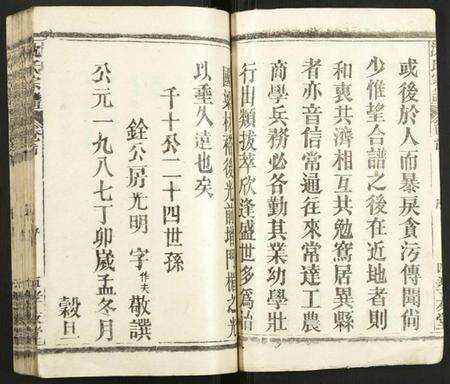 或後於人而暴戾貪污傳聞尚
少惟望合譜之後在近地者則
和衷共濟相互共勉寓居異縣
者亦音信常通往來常達工農
商學兵務必各勤其業幼學壯
行出類拔萃欣逢盛世多爲治
國
後光前增門楣之光
以垂久遠也矣
千十公二十四世孫
銓公房光明字作夫敬譔
公元一九八七丁卯歲孟冬月
穀旦